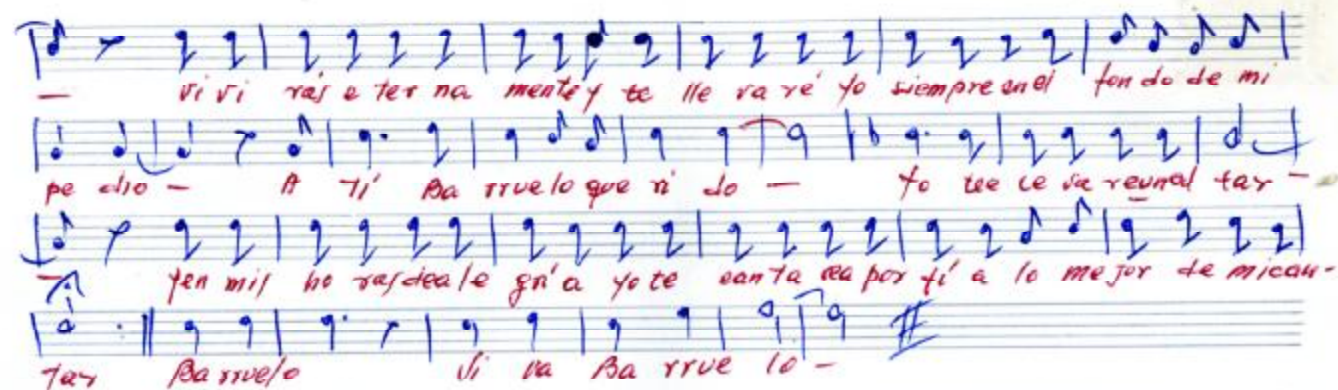 — vi vi rás e ter na mente y te lle va ré yo siempre en el fon do de mi
pe cho — A Ti Ba rrue lo que ri do — Yo te e le va re un al tar —
— Y en mis ho ras de a le grí a yo te can ta rea por tí a lo me jor de mi can -
Tar Ba rruelo Vi va Ba rrue lo -